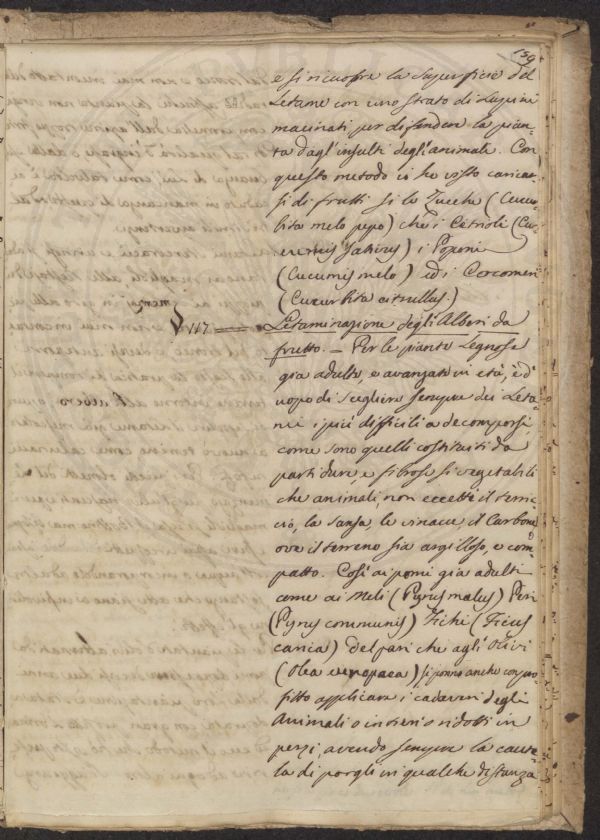 159
e si ricuopre la superficie del
Letame con uno strato di Lupini
macinati per difendere la pian-
ta dagl'insulti degli animali. Con
questo metodo io ho visto caricar-
si di frutti sì le Zucche (Cucur-
bita melo pepo) che i Cetrioli (Cu-
cumis sativus) i Poponi
(Cucumis melo) ed i Cocomeri
(Cucurbita citrullus.)
§ 117 Letaminazione degli Alberi da
frutto. = Per le piante Legnose
già adulte, e avanzate in età, è d'
uopo di scegliere sempre dei Leta-
mi i più difficili a decomporsi,
come sono quelli costituiti da
parti dure, e fibrose sì vegetabili
che animali, non eccettè il terric-
ciò, la sansa, le vinacce, il Carbone
ove il terreno sia argilloso, e com-
patto. Così ai pomi già adulti
come ai Meli (Pyrus malus) Peri
(Pyrus communis) Fichi (Ficus
carica) del pari che agli Olivi
(Olea europaea) si ponno anche con pro-
fitto applicare i cadaveri degli
Animali o intieri o ridotti in
pezzi, avendo sempre la caute-
la di porgli in qualche distanza